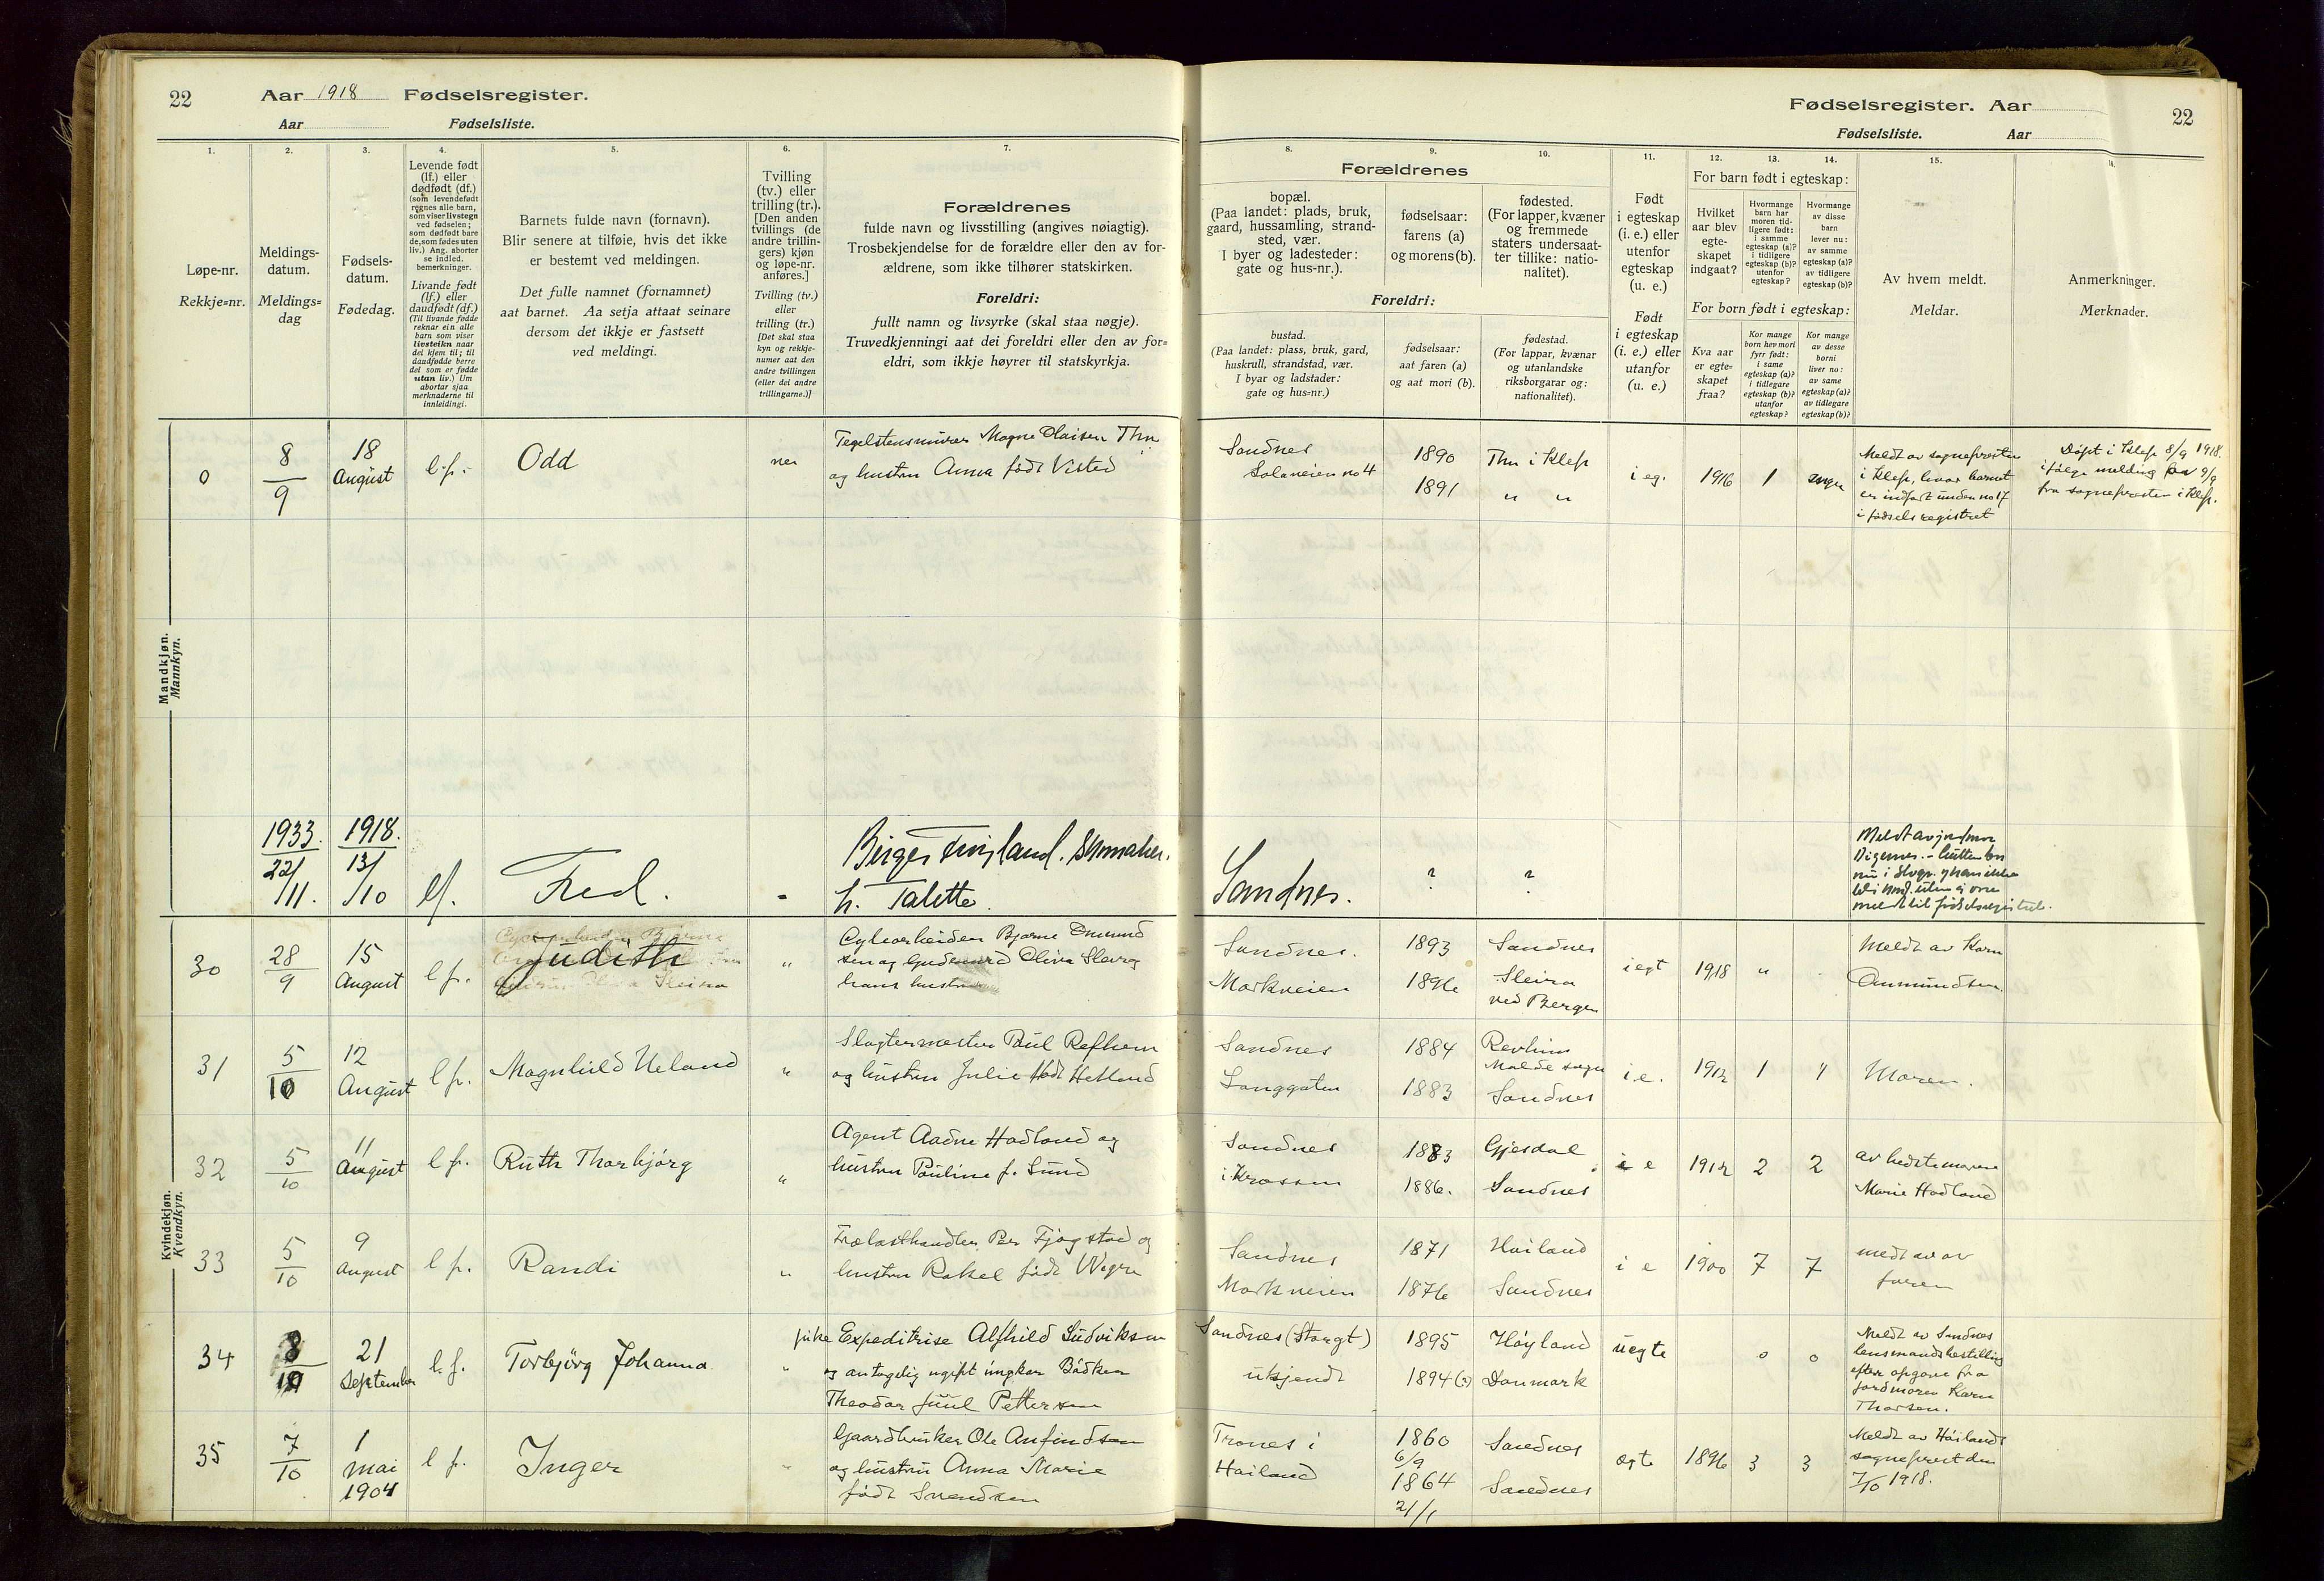 22
Aar 1918 Fødselsregister.
Aar Fødselsliste.
Fødselsregister. Aar
22
Fødselsliste. Aar
1.
Løpe-nr.
Rekkje=nr.
2.
Meldings-
datum.
Meldings=
dag
3.
Fødsels-
datum.
Fødedag.
4.
Levende født
(lf.) eller
dødfødt (df.)
(som levendefødt
regnes alle barn,
som viser livstegn
ved fødselen;
som dødfødt bare
de, som fødes uten
liv.) Ang. aborter
se indled.
bemerkninger.
Livande født
(lf.) eller
daudfødt (df.)
(Til livande fødde
reknar ein alle
barn som viser
livsteikn naar
dei kjem til; til
daudfødde berre
dei som er fødde
utan liv.) Um
abortar sjaa
merknaderne til
innleidingi.
5.
Barnets fulde navn (fornavn).
Blir senere at tilføie, hvis det ikke
er bestemt ved meldingen.
Det fulle namnet (fornamnet)
aat barnet. Aa setja attaat seinare
dersom det ikkje er fastsett
ved meldingi.
6.
Tvilling
(tv.) eller
trilling (tr.).
[Den anden
tvillings (de
andre trillin-
gers) kjøn
og løpe-nr.
anføres.]
Tvilling (tv.)
eller
trilling (tr.)
[Det skal staa
kyn og rekkje-
numer aat den
andre tvillingen
(eller dei andre
trillingarne.)]
7.
Forældrenes
fulde navn og livsstilling (angives nøiagtig).
Trosbekjendelse for de forældre eller den av for-
ældrene, som ikke tilhører statskirken.
Foreldri:
fullt namn og livsyrke (skal staa nøgje).
Truvedkjenningi aat dei foreldri eller den av for=
eldri, som ikkje høyrer til statskyrkja.
Forældrenes
8.
bopæl.
(Paa landet: plads, bruk,
gaard, hussamling, strand-
sted, vær.
I byer og ladesteder:
gate og hus-nr.).
9.
fødselsaar:
farens (a)
og morens (b).
10.
fødested.
(For lapper, kvæner
og fremmede
staters undersaat-
ter tillike: natio-
nalitet).
Foreldri:
bustad.
(Paa landet: plass, bruk, gard,
huskrull, strandstad, vær.
I byar og ladstader:
gate og hus=nr.)
fødselsaar:
aat faren (a)
og aat mori (b).
fødestad.
(For lappar, kvænar
og utanlandske
riksborgarar og:
nationalitet).
11.
Født
i egteskap
(i. e.) eller
utenfor
egteskap
(u. e.)
Født
i egteskap
(i. e.) eller
utanfor
(u. e.)
12. 13. 14.
For barn født i egteskap:
Hvilket
aar blev
egte-
skapet
indgaat?
Hvormange
barn har
moren tid-
ligere født:
i samme
egteskap (a)?
i tidligere
egteskap (b)?
utenfor
egteskap?
Hvormange
av disse
barn
lever nu:
av samme
egteskap (a)?
av tidligere
egteskap (b)?
For born født i egteskap:
Kva aar
er egte=
skapet
fraa?
Kor mange
born hev mori
fyrr født:
i same
egteskap (a)?
i tidlegare
egteskap (b)?
utanfor
egteskap?
Kor mange
av desse
borni
liver no:
av same
egteskap (a)?
av tidlegare
egteskap (b)?
15.
Av hvem meldt.
Meldar.
Anmerkninger.
Merknader.
Mandkjøn.
Mannkyn.
0 8/9 18 August l.f. Odd nei
Tegelstensmurer Magne Olaisen Thu
og hustru Anna født Visted
Sandnes
Solaveien no 4
1890
1891
Thu i Klep
" "
i eg. 1916 1 ingen
Meldt av sognepresten
i Klep, hvor barnet
er indført under no 17
i fødselsregistret
Døpt i Klep 8/9 1918.
ifølge melding 9/9
fra sognepresten i Klep.
1933 22/11. 1918. 13/10 lf. Fred. -
Birger
h. Talette.
Sandnes.
? ?
Kvindekjøn.
Kvendkyn.
30 28/9 15 August l f. Judith "
Bjarne
hans hustru
Sandnes.
Markveien
1893
1896
Sandnes
Sleira
ved Bergen
i egt 1918 "
Meldt av Karn
Anmundsen.
31 5/10 12 August l f. Magnhild Ueland "
Slagtermester Paul Refheim
og hustru Julie født Hetland
Sandnes
Langgaten
1884
1883
Revheim
Malde sogn
Sandnes
i e. 1912 1 "
Moren.
32 5/10 11 August l f. Ruth Thorbjørg "
Agent Aadne Hadland og
hustru Pauline f. Sund
Sandnes
i Krossen
1883
1886.
Gjesdal
Sandnes
i e 1912 2 2
av bedstemoren
Marie Hadland
33 5/10 9 August l f. Randi "
Trælasthandler Per Fjogstad og
hustru Rakel født Wagn
Sandnes
Markveien
1871
1876
Høiland
Sandnes
i e 1900 7 7
medt av av
faren
34 8/10 21 September l. f. Torbjørg Johanna "
pike Expeditrise Alfhild Ludviksen
og antagelig ugift ungkar Bødker
Theodor Juul Pettersen
Sandnes (Storgt)
ukjendt
1895
1894(?)
Høyland
Danmark
uegte 0 0
Meldt av Sandnes
lensmandsbestilling
efter opgave fra
jordmoren Karn
Thorsen.
35 7/10 1 mai 1904 l f. Inger "
Gaardbruker Ole Anfindsen
og hustru Anna Marie
født Svendsen
Trones i
Høiland
1860
6/9
1864
21/1
Sandnes
Sandnes
egte 1896 3 3
Meldt av Høilands
sogneprest den
7/10 1918.